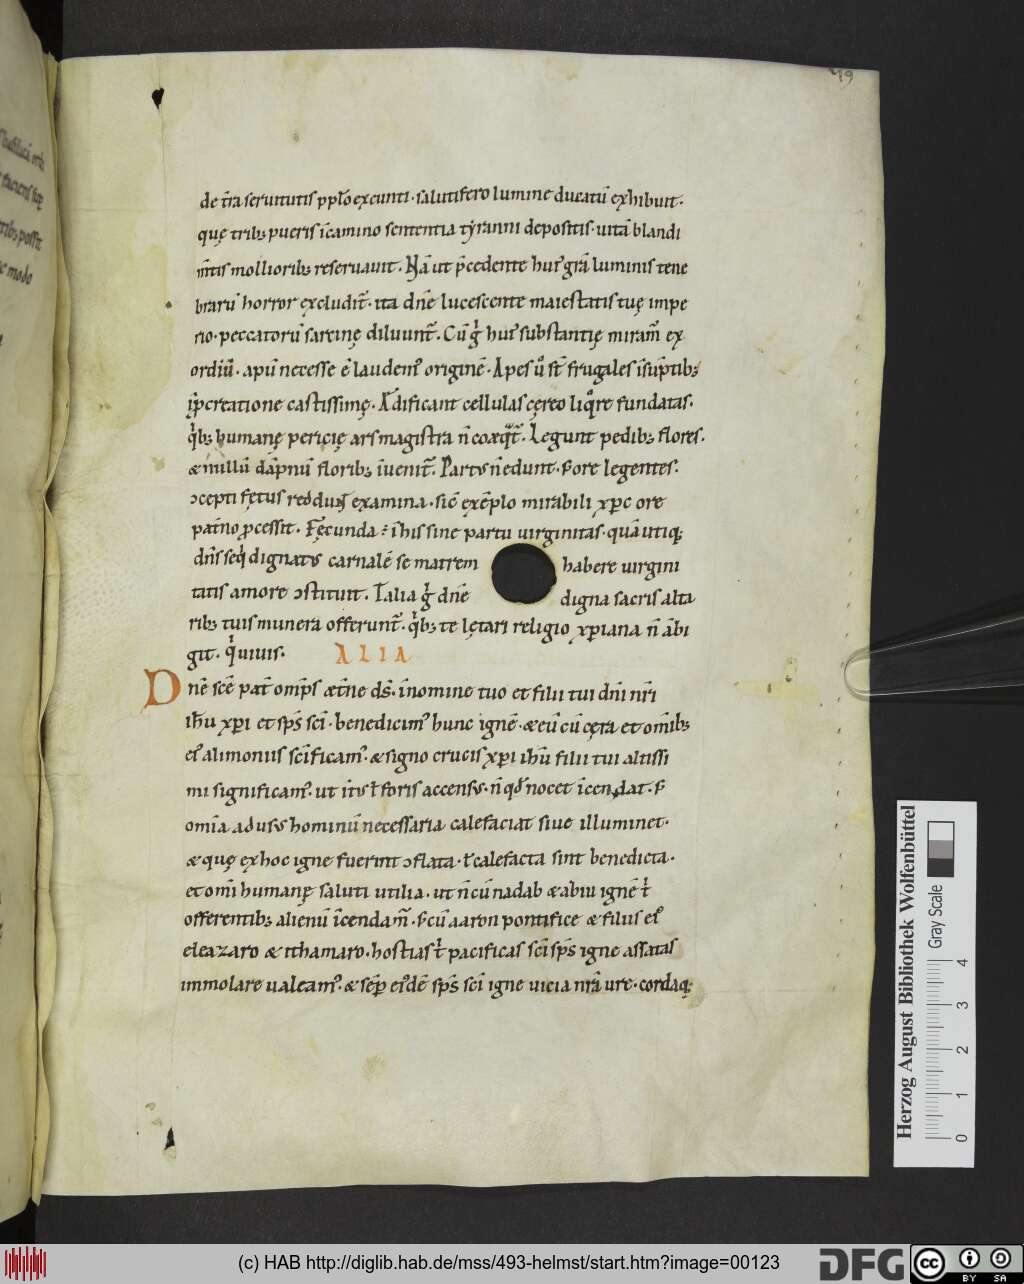 49
de t̄ra seruitutis ppl̄o exeunti· salutifero lumine ducatū exhibuit·
quę trib; pueris ī camino sententia tyranni depositis· uitā blandi
m̄tis mollioribꝫ reseruauit. Nā ut p̄cedente hui᷒ grā luminis tene
brarū horror excludit̄· ita dn̄e lucescente maiestatis tuę impe
rio· peccatorū sarcinę diluunt̄. Cū gͥ hui᷒ substantię miram̄ ex
ordiū· apū necesse ē laudem᷒ originē. Apes ū st̄ frugales ī sūptibꝫ
ī p̱creatione castissimę. Ædificant cellulas cęreo liq̊re fundatas·
qͥbꝫ humanę pericię ars magistra n̄ coæq̄t̄. Legunt pedibꝫ flores·
& nullū dāpnū floribꝫ īuenit̄. Partus n̄ edunt· s; ore legentes·
ɔcepti fętus reddunt examina· sic̄ exēplo mirabili xp̄c ore
pat̄no ꝓcessit. Fęcunda ē ī his sine partu uirginitas· quā utiqꝫ
dn̄s seqͥ dignatus carnalē se matrem habere uirgini
tatis amore ɔstituit. Talia gͥ dn̄e digna sacris alta
ribꝫ tuis munera offerunt̄· qͥbꝫ te lętari religio xp̄iana n̄ ābi
git. qͥ uiuis.
ALIA
Dn̄e sc̄e pat̄ omp̄s æt̄ne ds̄· ī nomine tuo et filii tui dn̄i nr̄i
ih̄u xp̄i et sp̄s sc̄i· benedicim᷒ hunc ignē· & eū cū cęra et om̄ibꝫ
ei᷒ alimoniis sc̄ificam᷒· & signo crucis xp̄i ih̄u filii tui altissi
mi significam᷒· ut īt᷒ ł foris accensus· n̄ qđ nocet īcendat· s;
om̄ia ad usus hominū necessaria calefaciat siue illuminet·
& quę ex hoc igne fuerint ɔflata· ł calefacta sint benedicta·
et om̄i humanę saluti utilia· ut n̄ cū nadab & abiu ignē t̄
offerentibꝫ alienū īcendam᷒· s; cū aaron pontifice & filiis ei᷒
eleazaro & ithamaro· hostias t̄ pacificas sc̄i sp̄s igne assatas
immolare ualeam᷒· & sēp ei᷒dē sp̄s sc̄i igne uicia nr̄a ure· cordaqꝫ
Herzog August Bibliothek Wolfenbüttel
Gray Scale
0 1 2 3 4
(c) HAB http://diglib.hab.de/mss/493-helmst/start.htm?image=00123
DFG
cc BY SA